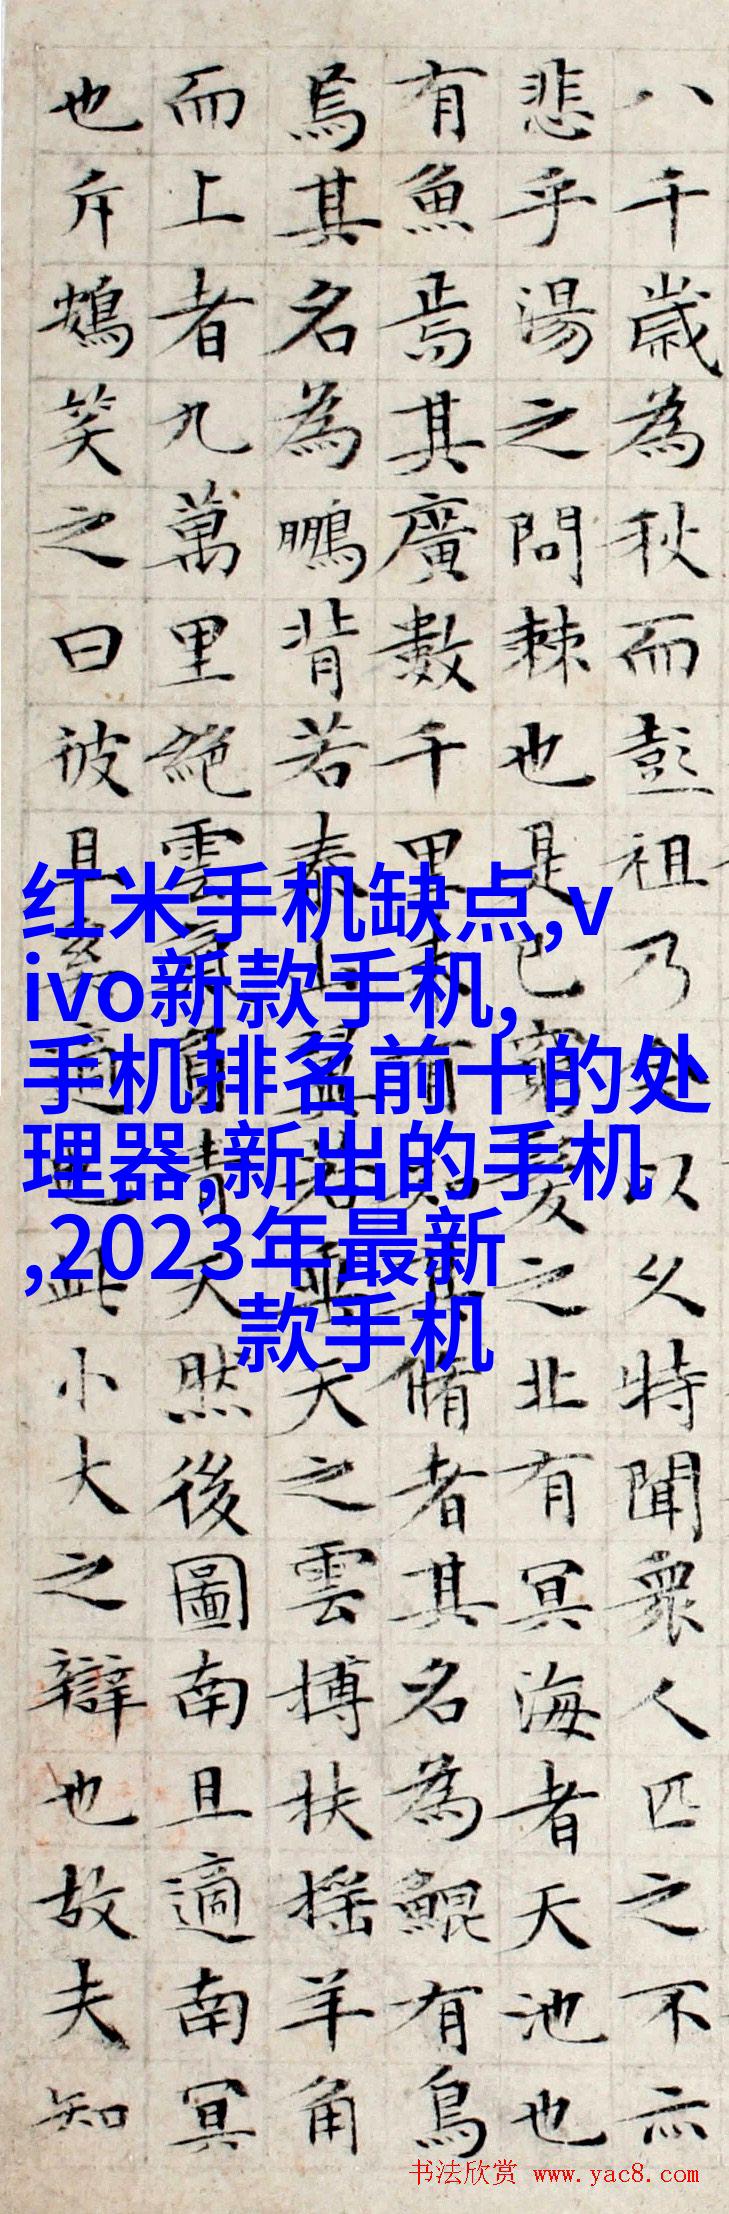 八千歲為秋而彭祖乃今以久特聞衆人匹之不亦
悲乎湯之問棘也是已窮髮之北有冥海者天池也
有魚焉其廣數千里未有知其脩者其名為鯤有鳥
焉其名為鵬背若泰山翼若垂天之雲摶扶搖羊角
而上者九萬里絕雲氣負青天然後圖南且適南冥
也斥鴳笑之曰彼且奚適也此小大之辯也故夫知
红米手机缺点,v
ivo新款手机,
手机排名前十的处
理器,新出的手机
,2023年最新
款手机
书法欣赏 www.yac8.com